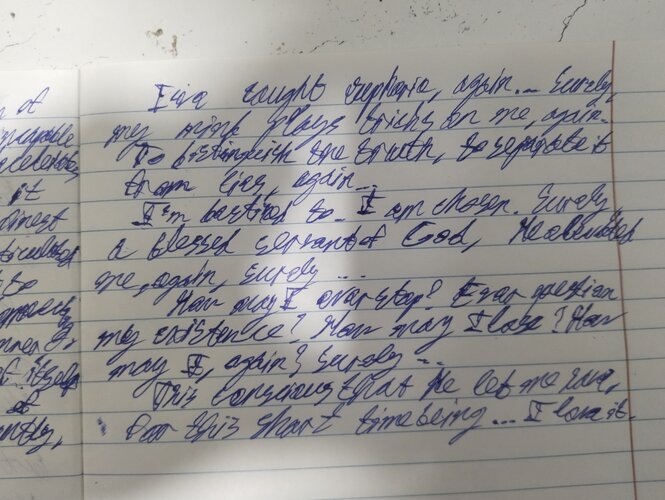 n of
incapable
celebrate,
it
I've caught euphoria, again... Surely,
my mind plays tricks on me, again.
To distinguish the truth, to separate it
from lies, again...
I'm destined to. I am chosen. Surely,
a blessed servant of God, He
me, again, surely...
How may I overstep? Ever question
my existence? How may I lose? How
may I, again? Surely...
This conscious that He let me run,
For this short time being... I love it.
to
itself
of